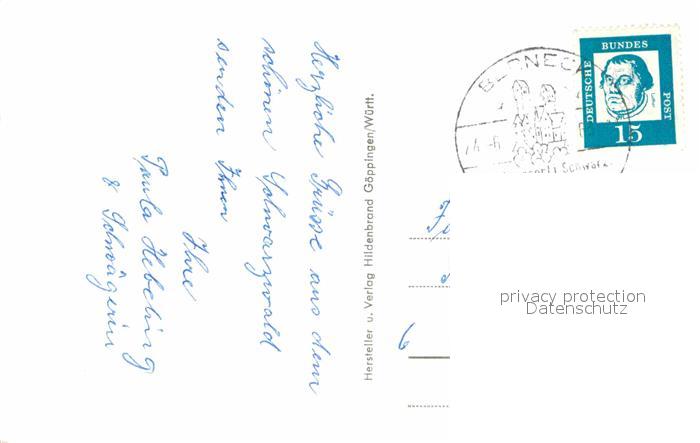 Herzliche Grüsse aus dem
schönen Schwarzwald
senden Ihnen
Ihre
Paula Hebeling
& Schwägerin
Hersteller u. Verlag Hildenbrand Göppingen/Württ.
BERNECK
Schwarz.
DEUTSCHE BUNDES POST
15
6
privacy protection
Datenschutz